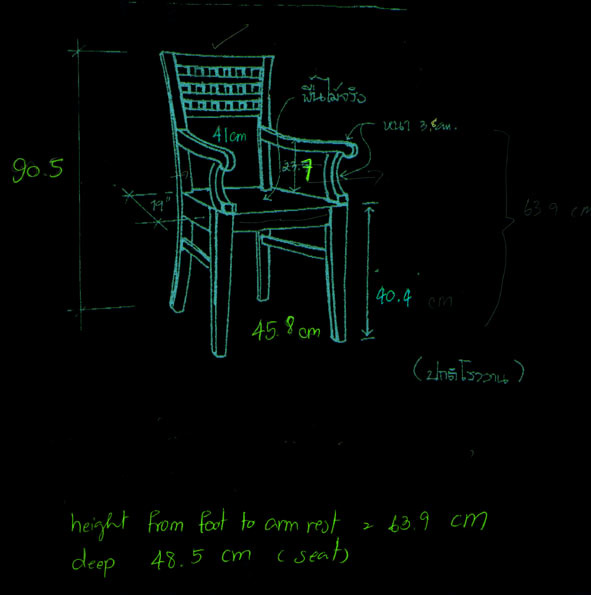 พื้นไม้จริง
41cm
หนา 3.8cm.
90.5
23.7
19"
63.9 cm
40.4 cm
45.8 cm
(ปกติโรงงาน)
height from foot to arm rest = 63.9 cm
deep 48.5 cm (seat)